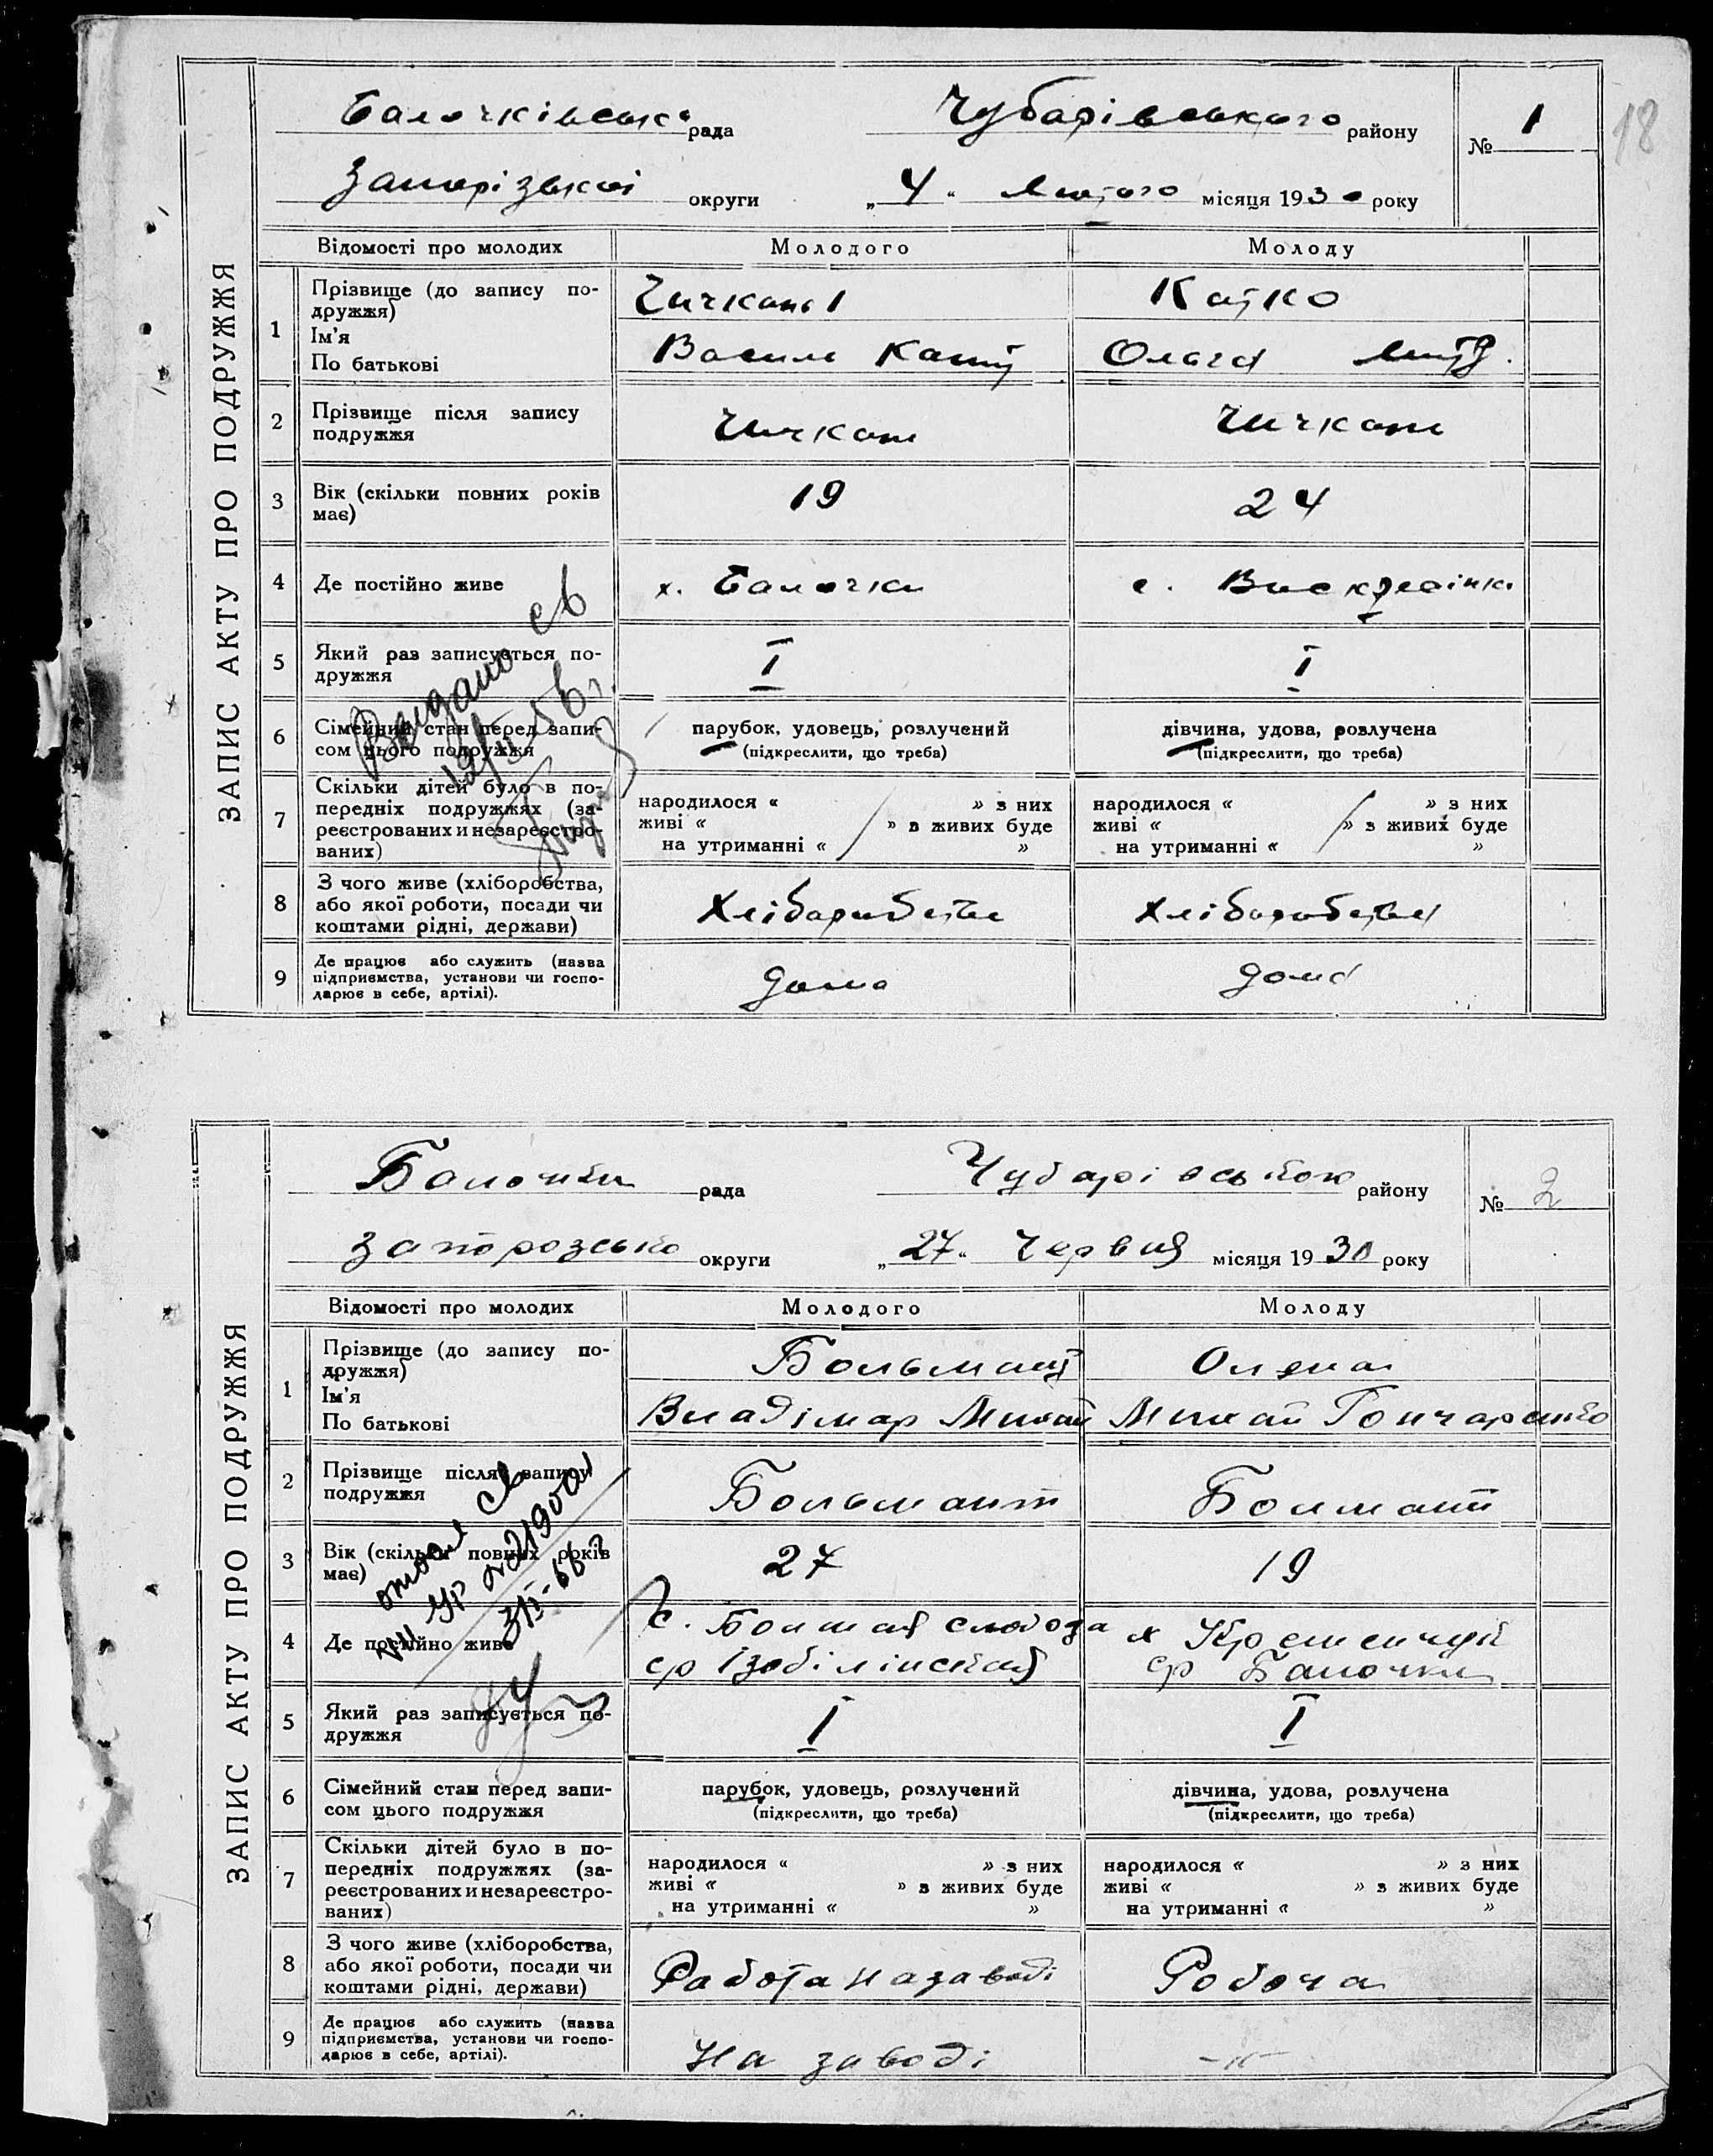 18
ЗАПИС АКТУ ПРО ПОДРУЖЖЯ
Балочківська рада Чубарівського району № 1
Запорізької округи „4“ Лютого місяця 1930 року
Відомості про молодих Молодого Молоду
1 Прізвище (до запису по-
дружжя)
Ім’я
По батькові
Чичкань Катко
Василь Ольга
2 Прізвище після запису
подружжя
Чичкань Чичкань
3 Вік (скільки повних років
має)
19 24
4 Де постійно живе х. Балочки с.
5 Який раз записується по-
дружжя
I I
6 Сімейний стан перед запи-
сом цього подружжя
парубок, удовець, розлучений дівчина, удова, розлучена
(підкреслити, що треба) (підкреслити, що треба)
7 Скільки дітей було в по-
передніх подружжях (за-
реєстрованих и незареєстро-
ваних)
народилося « » з них народилося « » з них
живі « » в живих буде живі « » з живих буде
на утриманні « » на утриманні « »
8 З чого живе (хліборобства,
або якої роботи, посади чи
коштами рідні, держави)
9 Де працює або служить (назва
підприємства, установи чи госпо-
дарює в себе, артілі).
дома дома
Видано св
ЗАПИС АКТУ ПРО ПОДРУЖЖЯ
Балочки рада Чубарівського району № 2
запорозько округи „27“ Червня місяця 1930 року
Відомості про молодих Молодого Молоду
1 Прізвище (до запису по-
дружжя)
Ім’я
По батькові
Больмант Олена
Владімар Михай Михай Гончаренко
2 Прізвище після запису
подружжя
Больмант Болмант
3 Вік (скільки повних років
має)
27 19
4 Де постійно живе
с. слобода х Кременчук
ср ср Балочки
5 Який раз записується по-
дружжя
I I
6 Сімейний стан перед запи-
сом цього подружжя
парубок, удовець, розлучений дівчина, удова, розлучена
(підкреслити, що треба) (підкреслити, що треба)
7 Скільки дітей було в по-
передніх подружжях (за-
реєстрованих и незареєстро-
ваних)
народилося « » з них народилося « » з них
живі « » в живих буде живі « » з живих буде
на утриманні « » на утриманні « »
8 З чого живе (хліборобства,
або якої роботи, посади чи
коштами рідні, держави)
Работа на заводі Робоча
9 Де працює або служить (назва
підприємства, установи чи госпо-
дарює в себе, артілі).
На заводі -"-